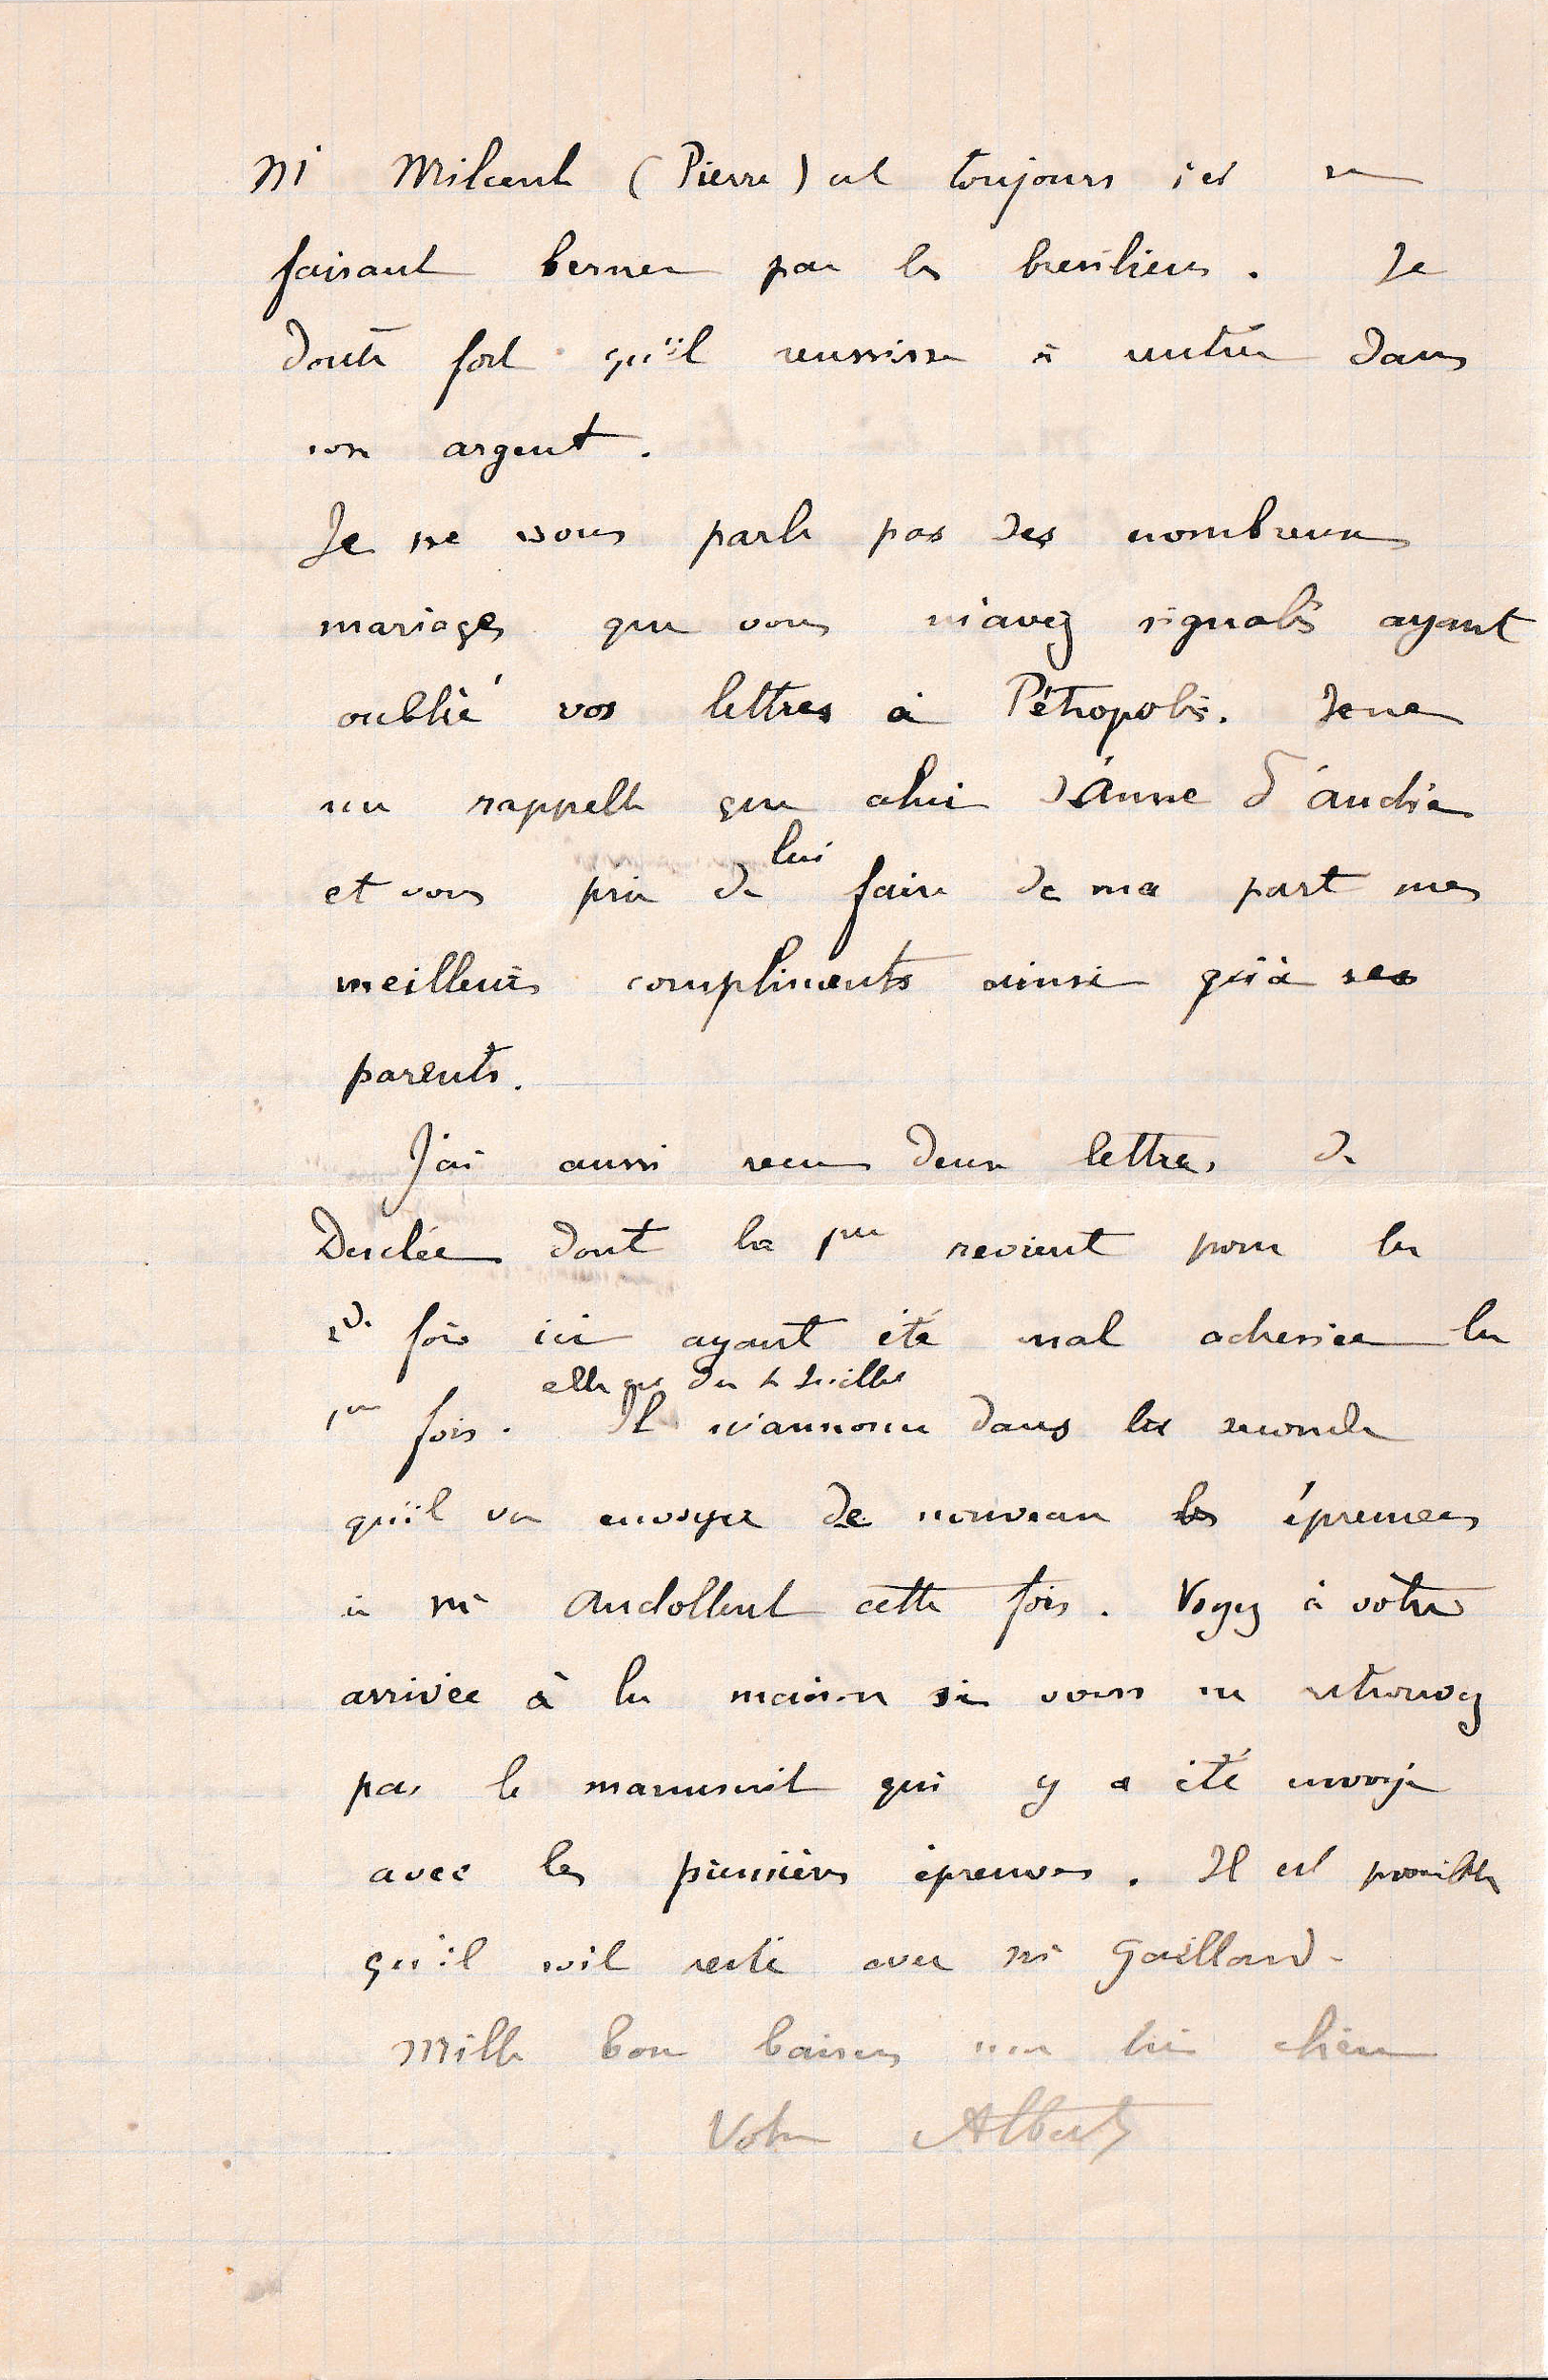 Mr Milcent (Pierre) est toujours ici se
faisant berner par les bresiliens. Je
doute fort qu'il reussisse à rentrer dans
son argent.
Je ne vous parle pas des nombreux
mariages que vous m'avez signalés ayant
oublié vos lettres à Pétropolis. Je ne
me rappelle que celui d'Anne d'Audia
et vous prie de lui faire de ma part mes
meilleurs compliments ainsi qu'à ses
parents.
J'ai aussi recu deux lettres de
Desclée dont la 1ere revient pour la
2de fois ici ayant été mal adressée la
elle est du 4 Juillet
1ere fois. Il m'annonce dans la seconde
qu'il va envoyer de nouveau les épreuves
à Mr Audollent cette fois. Voyez à votre
arrivée à la maison si vous ne retrouvez
pas le manuscrit qui y a été envoyé
avec les premières épreuves. Il est possible
qu'il soit resté avec Mr Gaillard.
Mille bons baisers ma très chère
Votre Albert